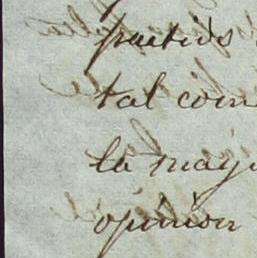 partidos
tal com
la may
opinion